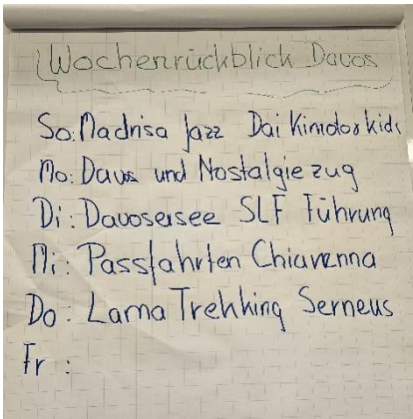 Wochenrückblick Davos
So: Madrisa Jazz Dai Kimotos kids
Mo: Davos und Nostalgiezug
Di: Davosersee SLF Führung
Mi: Passfahrten Chiavenna
Do: Lama Trekking Serneus
Fr :